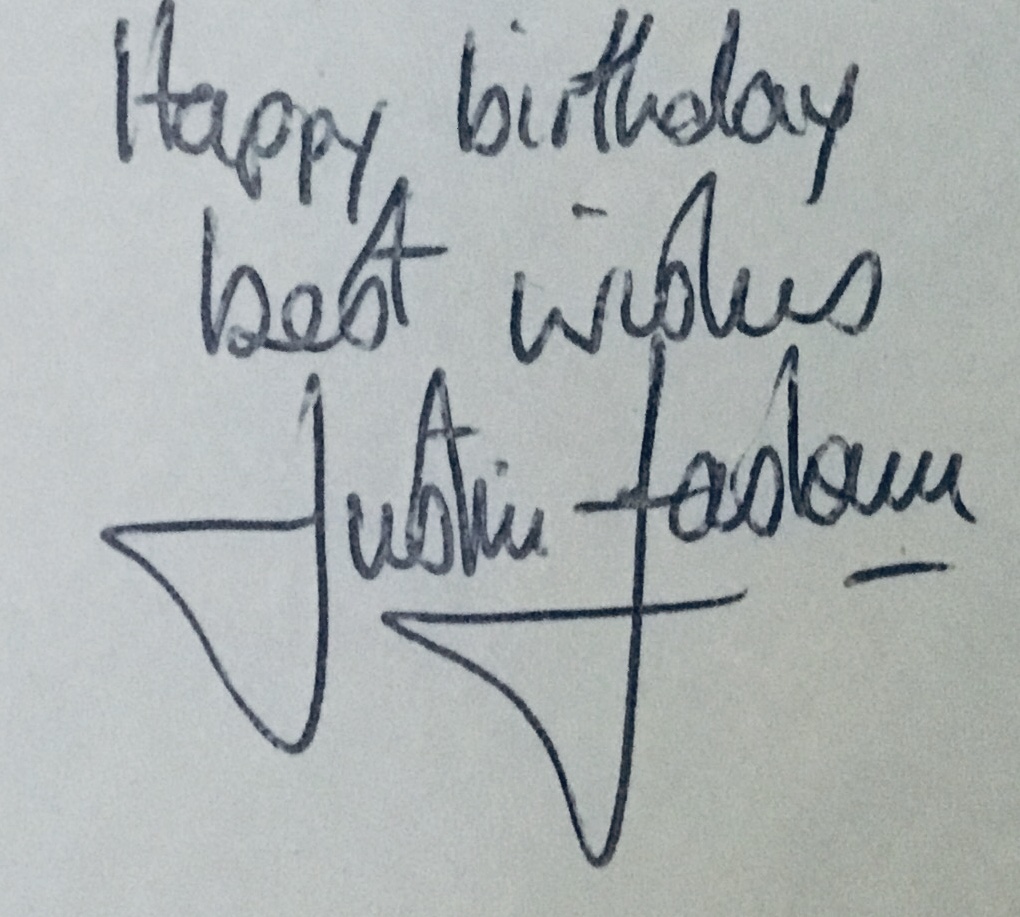 Happy birthday
best wishes
Justin Fashanu